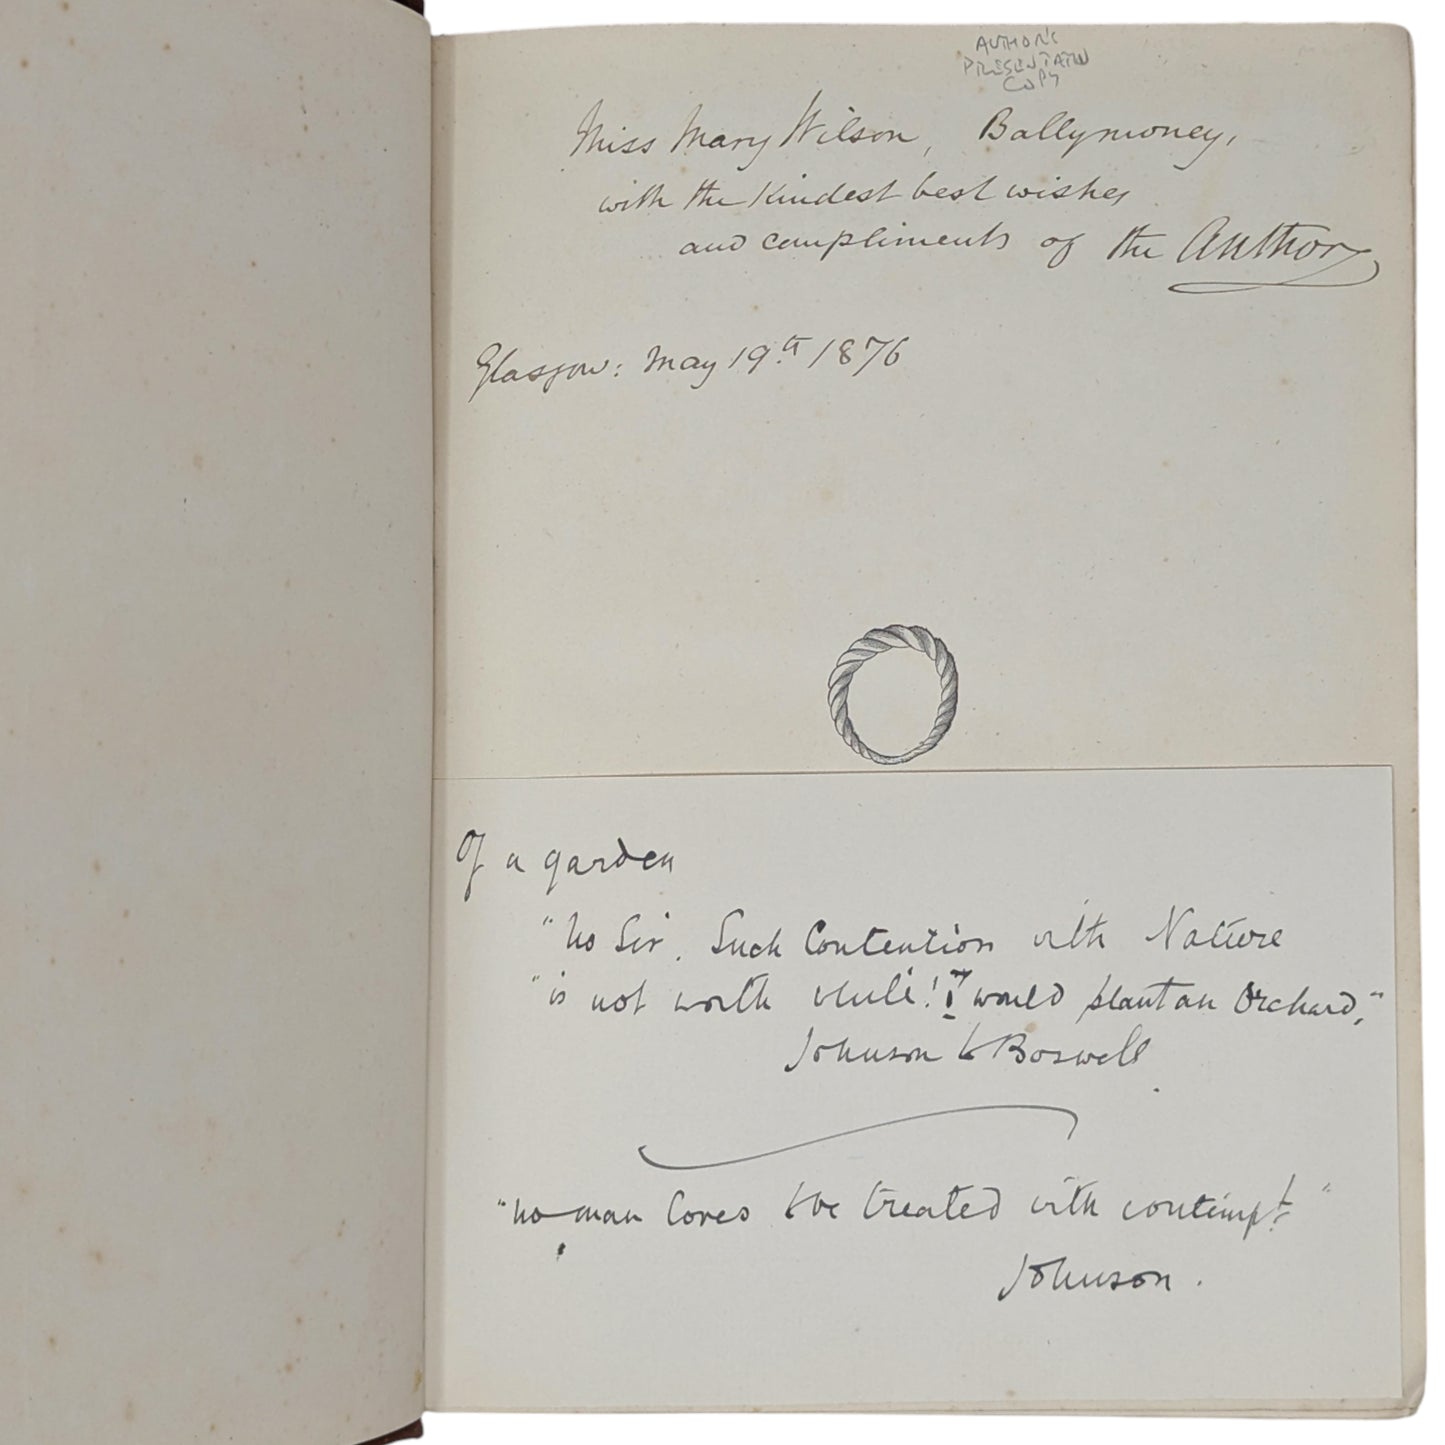 AUTHOR'S
PRESENTATION
COPY
Miss Mary Wilson, Ballymoney,
with the kindest best wishes
and compliments of the Author
Glasgow: May 19th 1876
Of a garden
"No Sir. Such Contention with Nature
"is not worth while! I would plant an Orchard,"
Johnson to Boswell
"no man loves to be treated with contempt"
Johnson.